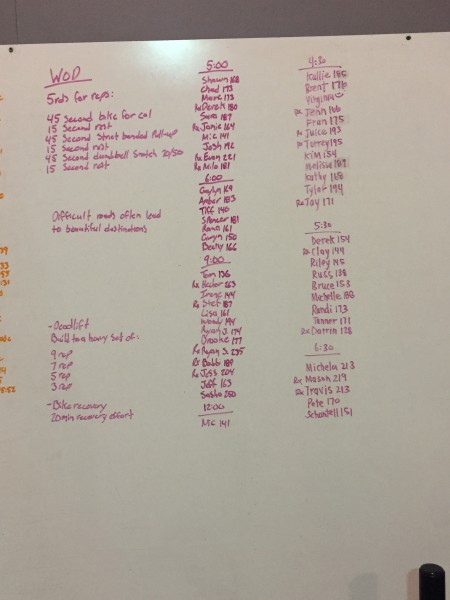 WOD
5rds for reps:
45 Second bike for cal
15 Second rest
45 Second Strict banded Pull-up
15 Second rest
45 Second dumbbell Snatch
15 Second rest
Difficult roads often lead
to beautiful destinations
- Deadlift
Build to a heavy set of:
9 rep
7 rep
5 rep
3 rep
- Bike recovery
20 min recovery effort
5:00
Shawn 168
Chad 173
Marc 173
Rx Derek 180
Sara 187
Rx Jamie 164
Mic 141
Josh 192
Rx Evan 221
Rx Milo 181
6:00
Amber 183
Tiff 140
Spencer 181
Rana 161
Caryn 150
Becky 166
9:00
Tom 136
Rx Hector 263
144
187
Lisa 161
Woody 194
Ryan J. 174
Brooke 177
Rx Ryan S. 235
Rx Babbi 189
Rx Jess 204
Jeff 163
Sasha 250
12:00
Mc 141
4:30
Kallie 186
Brent 176
Virginia
Rx Jenn 166
Fran 175
Rx Julia 193
Rx Torrey 195
Kim 154
Melissa 189
Kathy 168
Tyler 194
Rx Jay 171
5:30
Derek 154
Rx Clay 149
Riley 145
Russ 128
Bruce 153
Michelle 188
Randi 173
Tanner 171
Rx Darrin 128
6:30
Michela 213
Rx Mason 219
Rx Travis 213
Pete 170
151